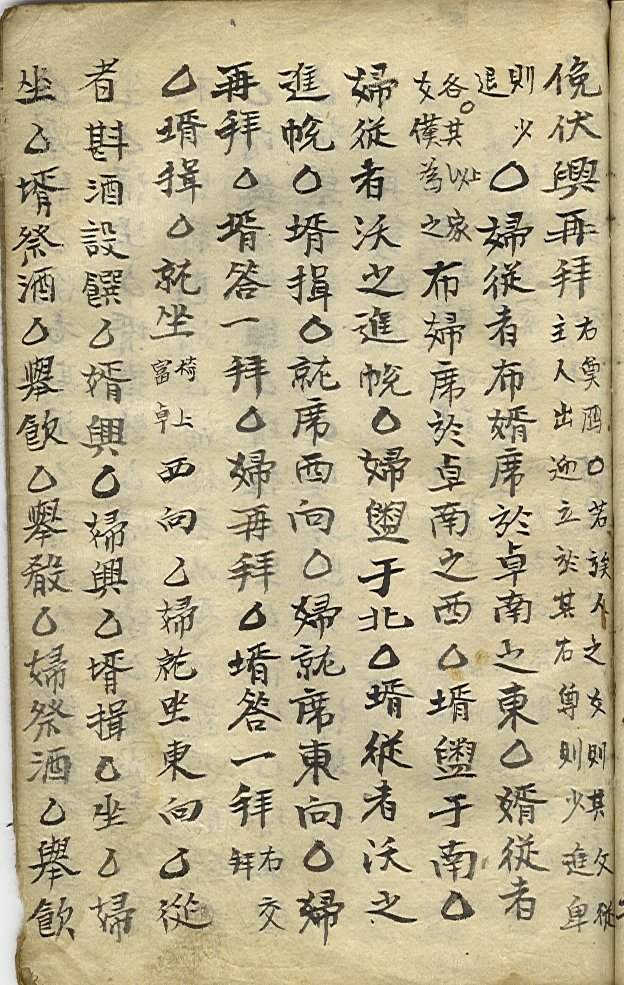 俛伏興再拜右奠鴈○若族人之女則其父從主人出迎立於其右尊則少進卑
則少退○婦從者布婿席於卓南之東○婿從者
各○其以上家女僕為之布婦席於卓南之西○壻盥于南○
婦從者沃之進帨○婦盥于北○壻從者沃之
進帨○壻揖○就席西向○婦就席東向○婦
再拜○壻答一拜○婦再拜○壻答一拜右交拜
○壻揖○就坐椅上富卓西向○婦就坐東向○從
者斟酒設饌○婿興○婦興○壻揖○坐○婦
坐○壻祭酒○舉飮○舉殽○婦祭酒○舉飮